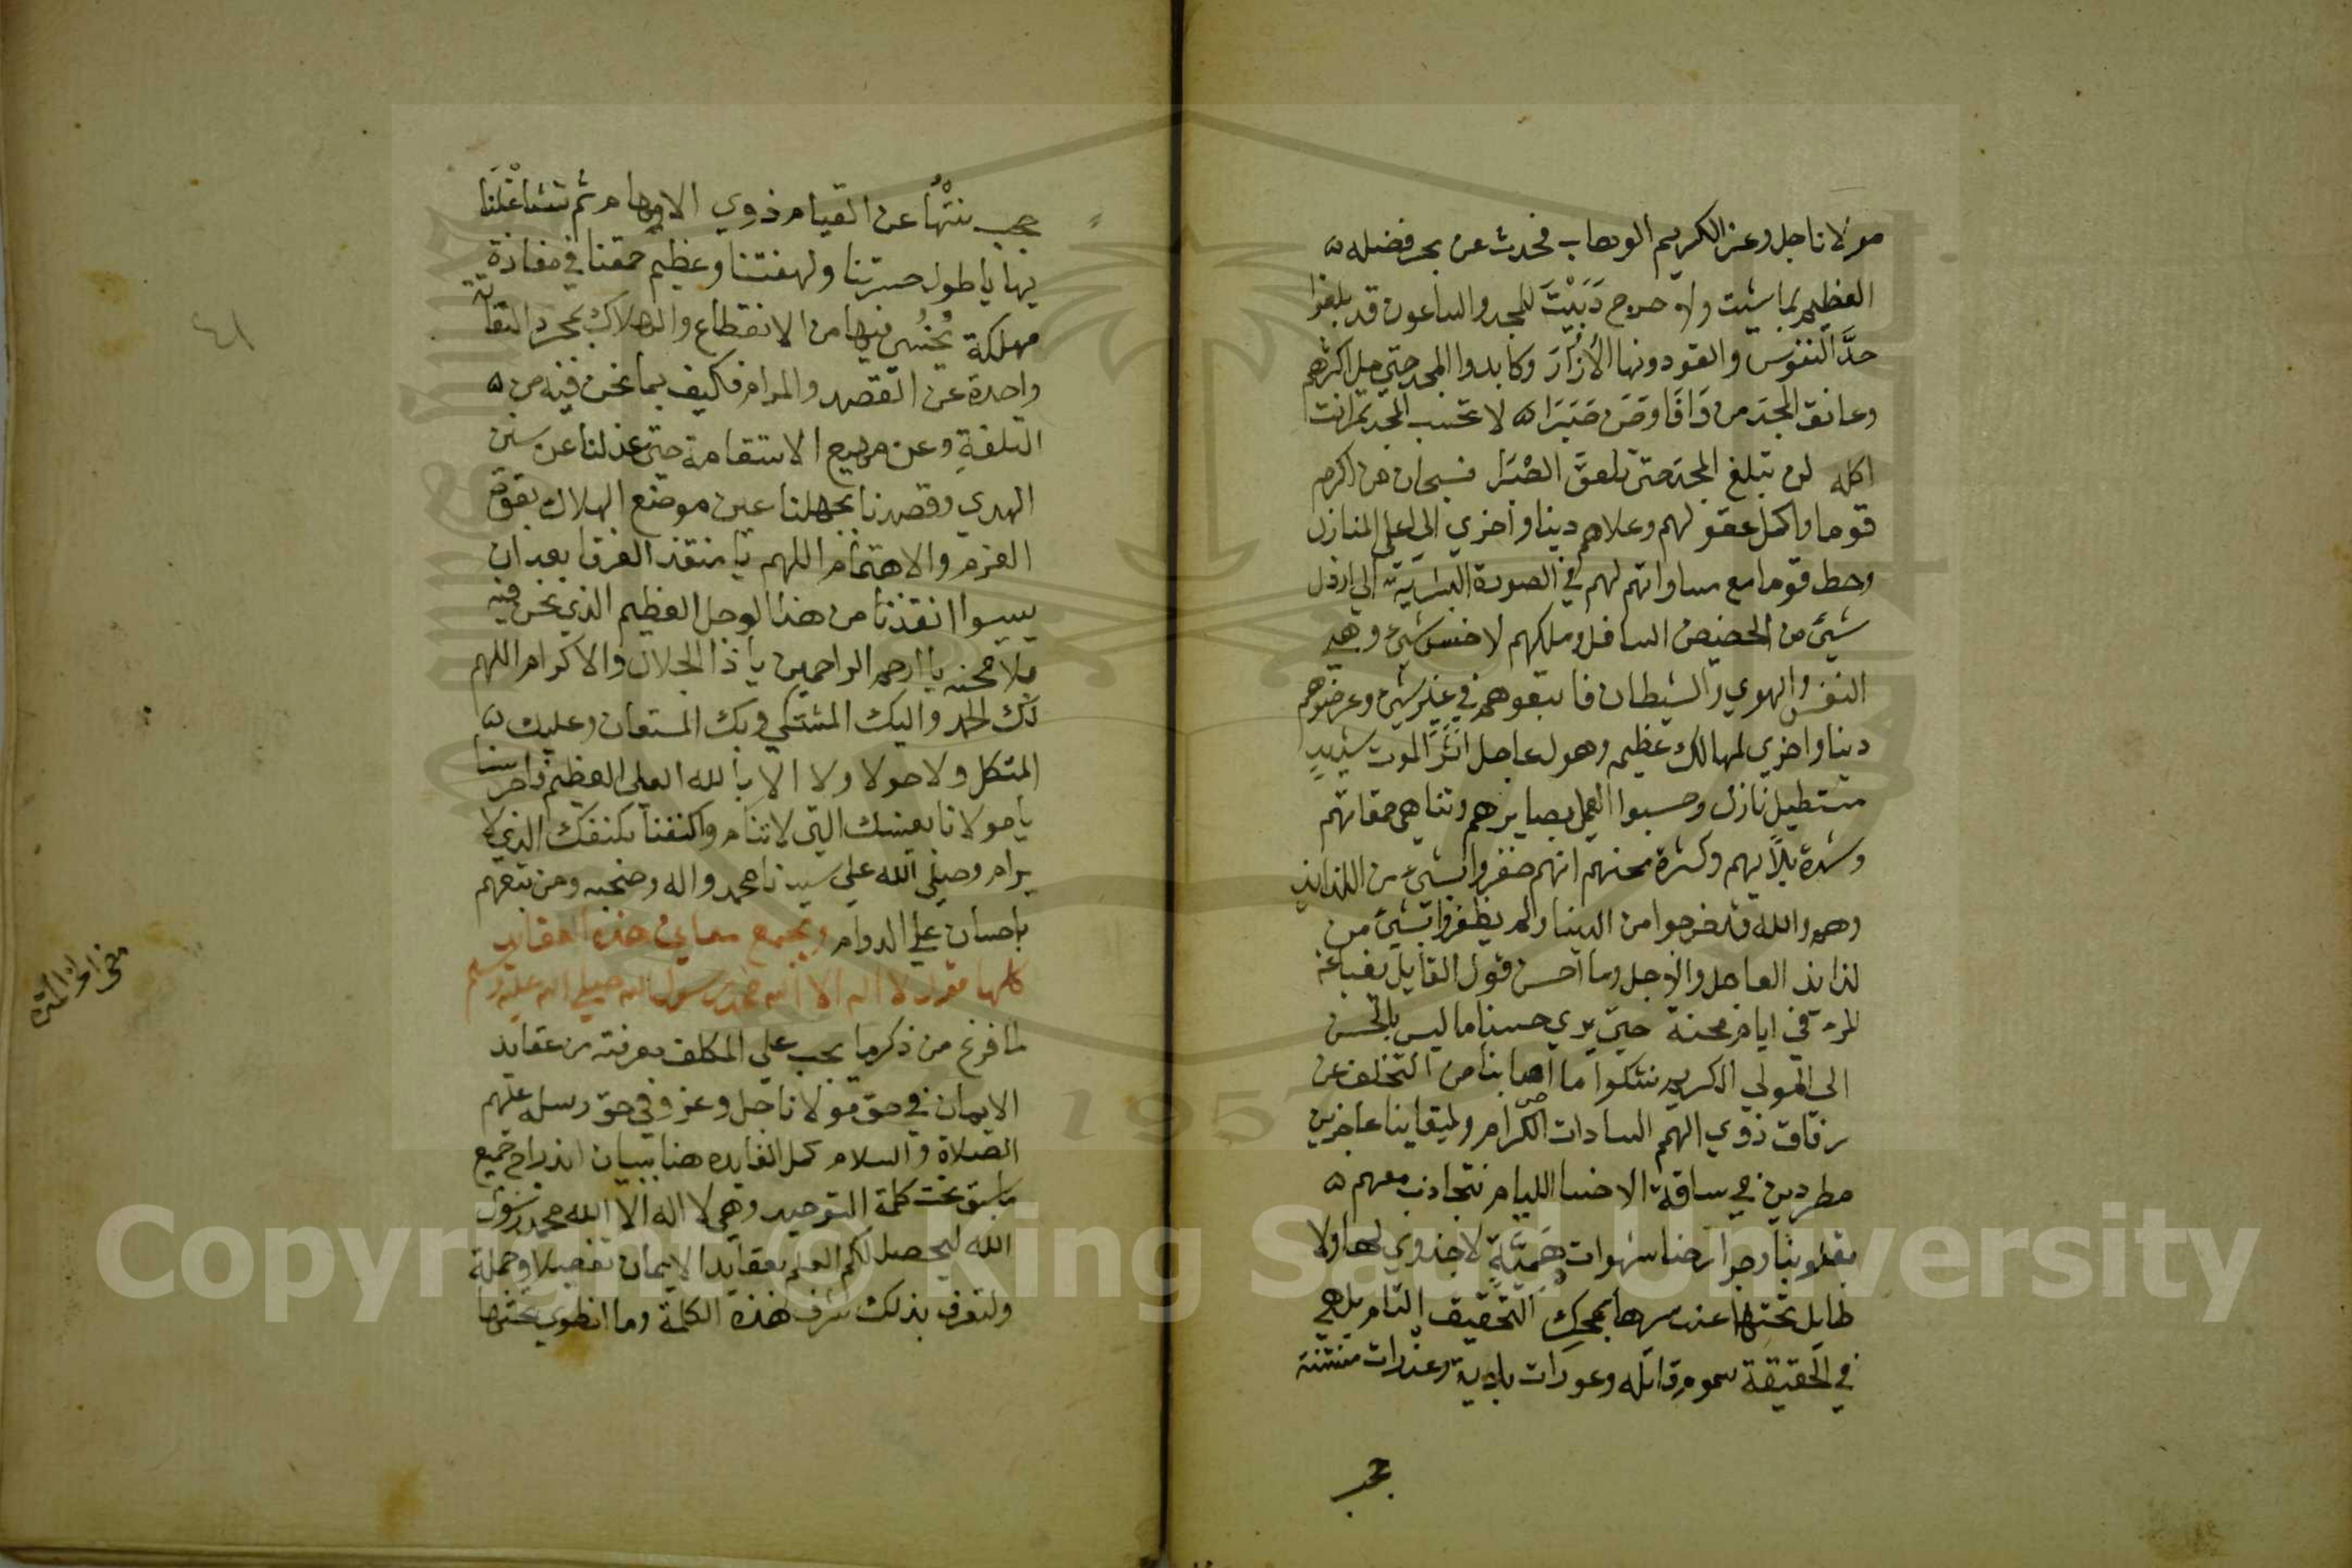 مولانا جل وعز الكريم الوهاب فحدث عن بحر فضله
العظيم بما شيت ولا حرج دَبَبْتَ للمجد والساعون قد بلغوا
حدَّ النفوس والقو دونها الأُزُرَ وكابدوا المجد حتي مل اكثرهم
وعانق المجد من وَافَا ومَن صَبَرَا لا تحسب المجد تمرا انت
اكله لن تبلغ المجد حتي تلعق الصَّبَرا فسبحان من اكرم
قوما واكمل عقولهم وعلاهم دينا واخري الي اعلي المنازل
وحط قوما مع مساواتهم لهم في الصورة البشرية الي ارذل
شيء من الحضيض السافل وملكهم لاخس شيء وهي
النفس والهوي والشيطان فاتبعوهم في غير شيء وعرضوهم
دينا واخري لمهالك عظيم وهول عاجل اثر الموت شديد
مستطيل نازل وحسبوا لعمي بصايرهم وتناهي حمقاتهم
وشدة بلايهم وكثرة محنهم انهم ظفروا بشيء من اللذايذ
وهم والله قد خرجوا من الدنيا ولم يظفروا بشيء من
لذايذ العاجل والاجل وما احسن قول القايل
للمرء في ايام محنة حتي يري حسنا ما ليس بالحسن
الي المولي الكريم نشكوا ما اصابنا من التخلف عن
رفاق ذوي الهمم السادات الكرام وبقاينا عاجزين
مطردين في ساقة الاخسا الليام نتجاذب معهم
بقلوبنا وجوارحنا شهوات لا جدوي لها ولا
طايل تحتها عند سرها بمحك التحقيق التام بل هي
في الحقيقة سموم قاتله وعورات بادية وعذرات منتنة
حجب
حجب نتنها عن القيام ذوي الاوهام ثم تشاغلنا
بها يا طول حسرتنا ولهفتنا وعظيم حمقنا في مفازة
مهلكة نخشي فيها من الانقطاع والهلاك بمجرد التفاتة
واحدة عن القصد والمرام فكيف بما نحن فيه من
التلفة وعن مهيع الاستقامة حتي عدلنا عن سنن
الهدي وقصدنا بجهلنا عين موضع الهلاك بقوة
العزم والاهتمام اللهم يا منقذ الغرقا بعد ان
ييسوا انقذنا من هذا الوحل العظيم الذي نحن فيه
بلا محنه يا ارحم الراحمين يا ذا الجلال والاكرام اللهم
لك الحمد واليك المشتكي وبك المستعان وعليك
المتكل ولا حولا ولا الا بالله العلي العظيم واحرسنا
يا مولانا بعينك التي لا تنام واكنفنا بكنفك الذي لا
يرام وصلي الله علي سيدنا محمد واله وصحبه ومن تبعهم
باحسان علي الدوام ويجمع معاني هذه العقايد
كلها قول لا اله الا الله محمد رسول الله صلي الله عليه وسلم
لما فرغ من ذكر ما يجب علي المكلف معرفته من عقايد
الايمان في حق مولانا جل وعز وفي حق رسله عليهم
الصلاة والسلام كمل الفايده هنا ببيان اندراج جميع
ما سبق تحت كلمة التوحيد وهي لا اله الا الله محمد رسول
الله ليحصل لكم العلم بعقايد الايمان تفصيلا وجملة
ولتعرف بذلك شرف هذه الكلمة وما انطوي تحتها
٤١
Copyright © King Saud University
1957